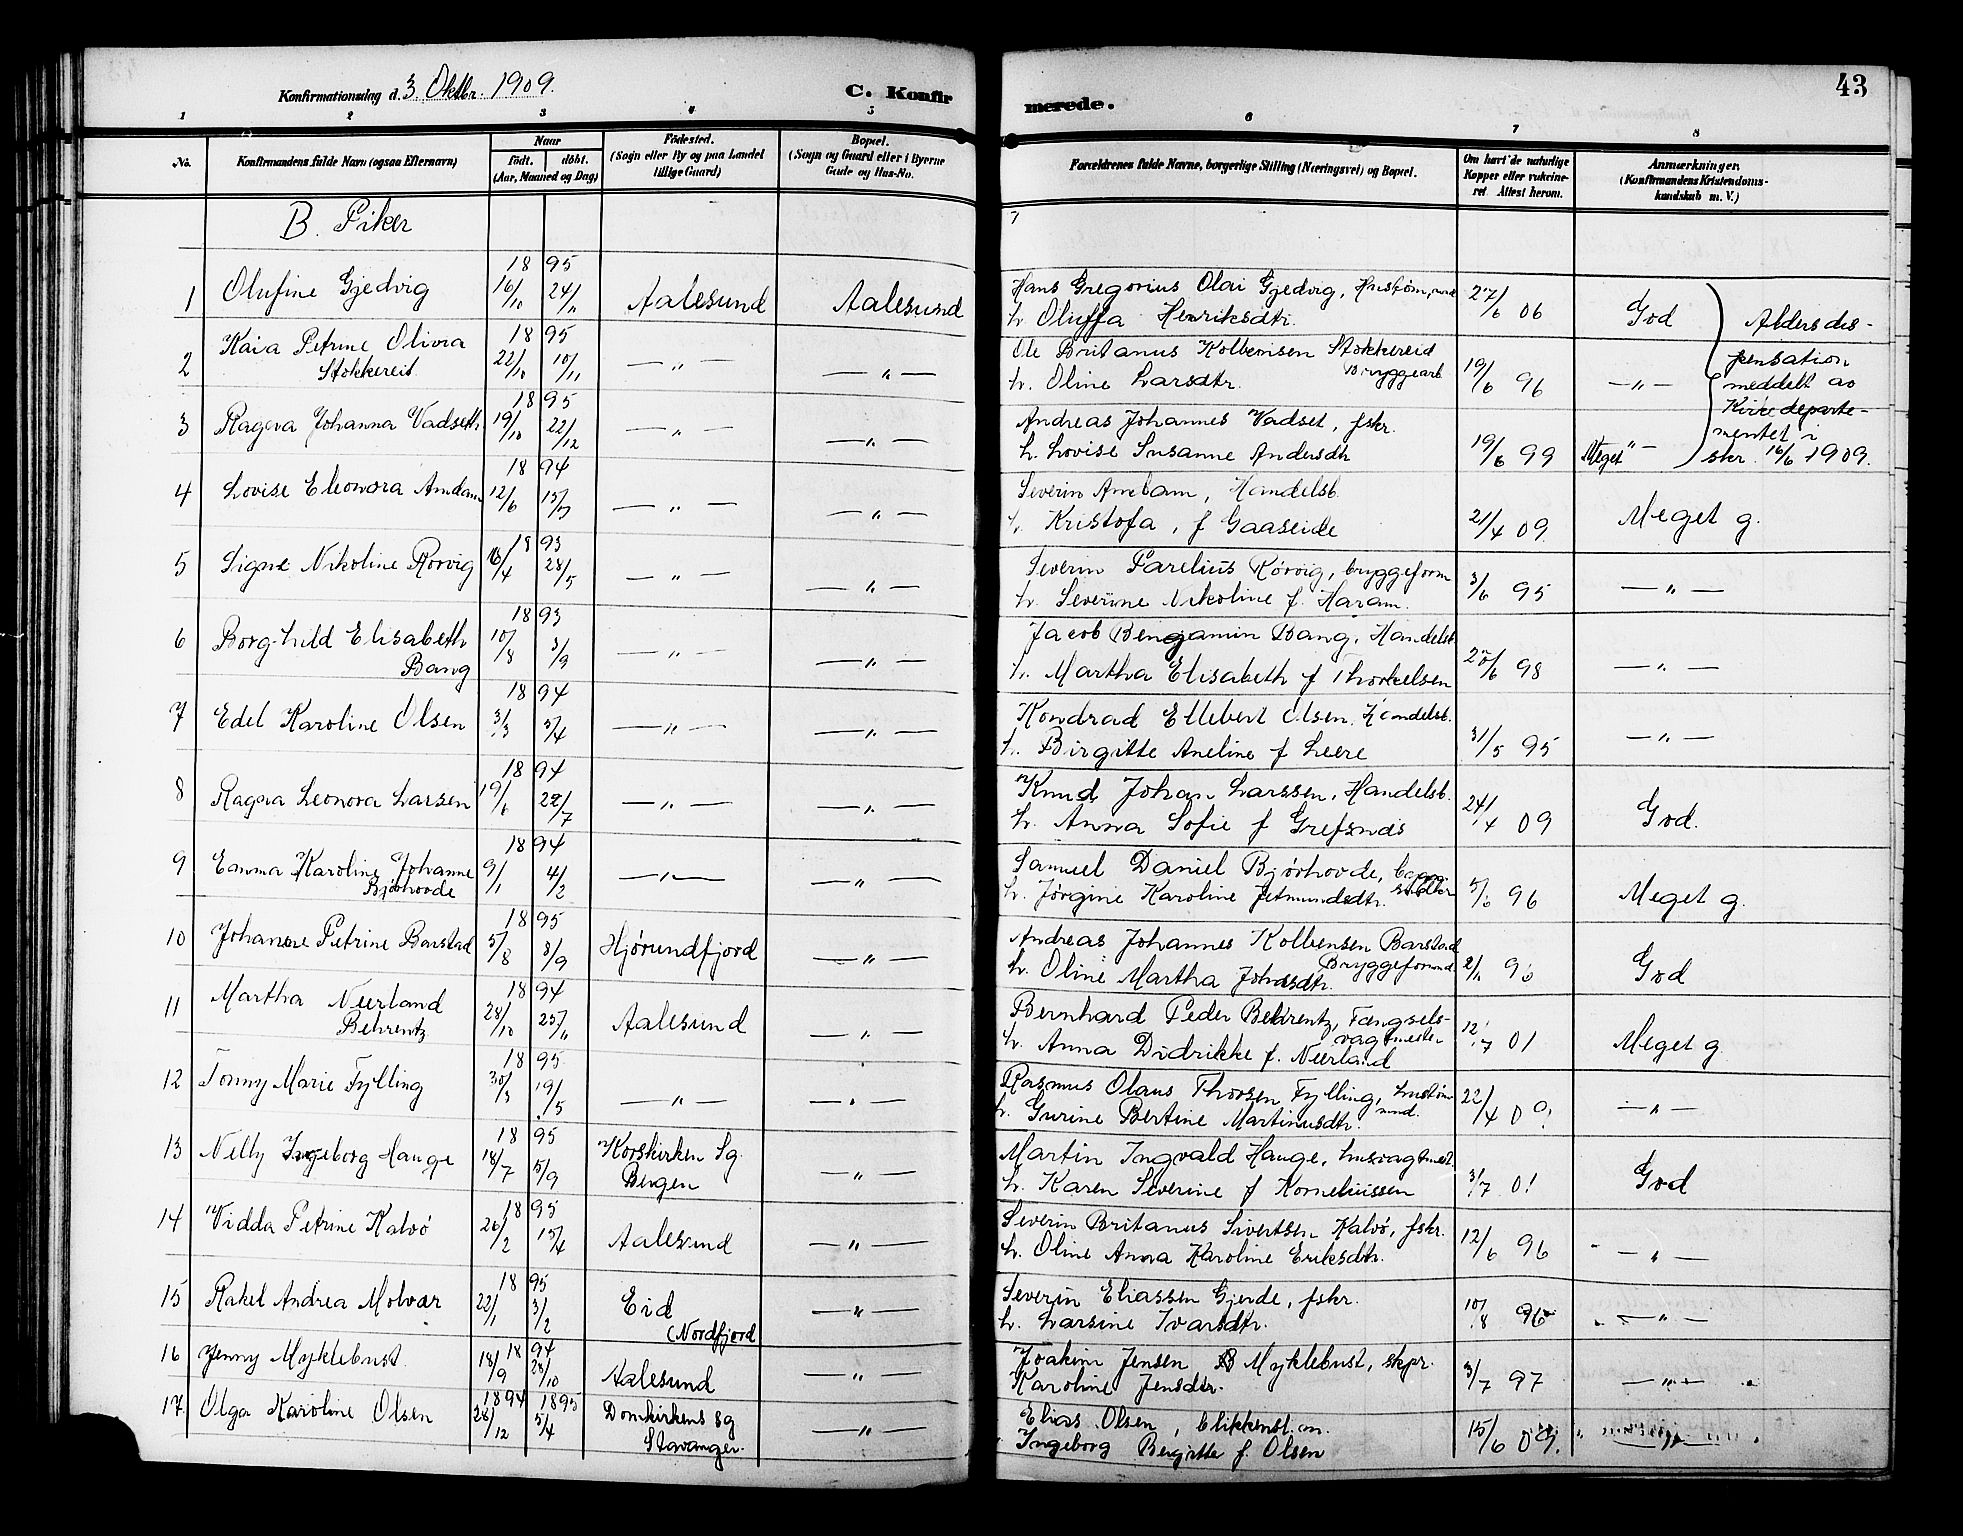 43
Konfirmationsdag d. 3. Oktbr. 1909. C. Konfirmerede.
1 2 3 4 5 6 7 8
No. Konfirmandens fulde Navn (ogsaa Efternavn) Naar født. døbt. (Aar, Maaned og Dag) Fødested. (Sogn eller By og paa Landet tillige Gaard) Bopæl. (Sogn og Gaard eller i Byerne Gade og Hus-No. Forældrenes fulde Navne, borgerlige Stilling (Næringsvei) og Bopæl. Om havt de naturlige Kopper eller vaksineret Attest herom. Anmærkninger. (Konfirmandens Kristendomskundskab m. V.)
B. Piker
18 95
1 Olufine Gjedvig 16/10 24/11 Aalesund Aalesund Hans Gregorius Olai Gjedvig, Hustømmerm
h. Oluffa Henriksdtr. 27/6 06 God
Aldersdis-
pensation
meddelt av
Kirkedeparte-
mentet i
skr. 16/6 1909.
18 95
2 Kaia Petrine Olivia
Stokkereit 22/10 10/11 — " — — " — Ole Britanus Kolbensen Stokkereid
Bryggearb.
h. Oline Larsdtr. 19/6 96 — " —
18 95
3 Ragna Johanna Vadseth 19/10 22/12 — " — — " — Andreas Johannes Vadset, fskr.
h. Lovise Susanne Andersdtr 19/6 99 Meget " —
18 94
4 Lovise Eleonora Amdam 12/6 15/7 — " — — " — Severin Amdam, Handelsb.
h. Kristofa, f Gaaseide 21/4 09. Meget g.
18 93
5 Signe Nikoline Rørvig 16/4 28/5 — " — — " — Severin Parelius Rørvig, bryggeform
h. Severine Nikoline f. Haram. 3/6 95 — " —
18 93
6 Borghild Elisabeth
Bang 10/8 3/9 — " — — " — Jacob Bengamin Bang, Handelsb
h. Martha Elisabeth f Thorkelsen 20/6 98 — " —
18 94
7 Edel Karoline Olsen 3/3 5/4 — " — — " — Kondrad Ellebert Olsen, Handelsb.
h. Birgitte Aneline f Leere 31/5 95 — " —
18 94
8 Ragna Leonora Larsen 19/6 22/7 — " — — " — Knud Johan Larssen, Handelsb.
h. Anna Sofie f Grefsnæs 24/4 09 God.
18 94
9 Emma Karoline Johanne
Bjørhovde 9/1 4/2 — " — — " — Samuel Daniel Bjørhovde,
h. Jørgine Karoline Jetmundsdtr. 5/6 96 Meget g.
18 95
10 Johanne Petrine Barstad 5/8 8/9 Hjørundfjord — " — Andreas Johannes Kolbensen Barstad
Bryggeformnd
h. Oline Martha Johnsdtr. God
18 94
11 Martha Neerland
Behrentz 28/10 25/11 Aalesund — " — Bernhard Peder Behrentz, Fængsels-
vagtmester
h. Anna Didrikke f. Neerland 12/7 01 Meget g.
18 95
12 Tonny Marie Fylling 30/3 19/5 — " — — " — Rasmus Olaus Thorsen Fylling, hustøm
mnd.
h. Gurine Bertine Martinusdtr. 22/4 09. — " —
18 95
13 Nelly Ingeborg Hauge 18/7 5/9 Korskirken Sg
Bergen — " — Martin Ingvald Hauge, husvagtmest.
h. Karen Severine f Korneliussen 3/7 01 God
18 95
14 Vidda Petrine Kalvø 26/2 15/4 Aalesund — " — Severin Britanus Sivertsen Kalvø, fskr.
h. Oline Anna Karoline Eriksdtr. 12/6 96 — " —
18 95
15 Rakel Andrea Molvær 22/1 3/2 Eid
(Nordfjord — " — Severin Eliassen Gjerde, fskr.
h. Larsine Ivarsdtr. 10/8 96 — " —
18 94
16 Jenny Myklebust 18/9 28/10 Aalesund — " — Joakim Jensen Myklebust, skpr.
Karoline Jensdtr. 3/7 97 — " —
1894 1895
17. Olga Karoline Olsen 28/12 5/4 Domkirkens sg
Stavanger. — " — Elias Olsen, blikkensl. m.
Ingeborg Bergitte f. Olsen 15/6 09. — " —